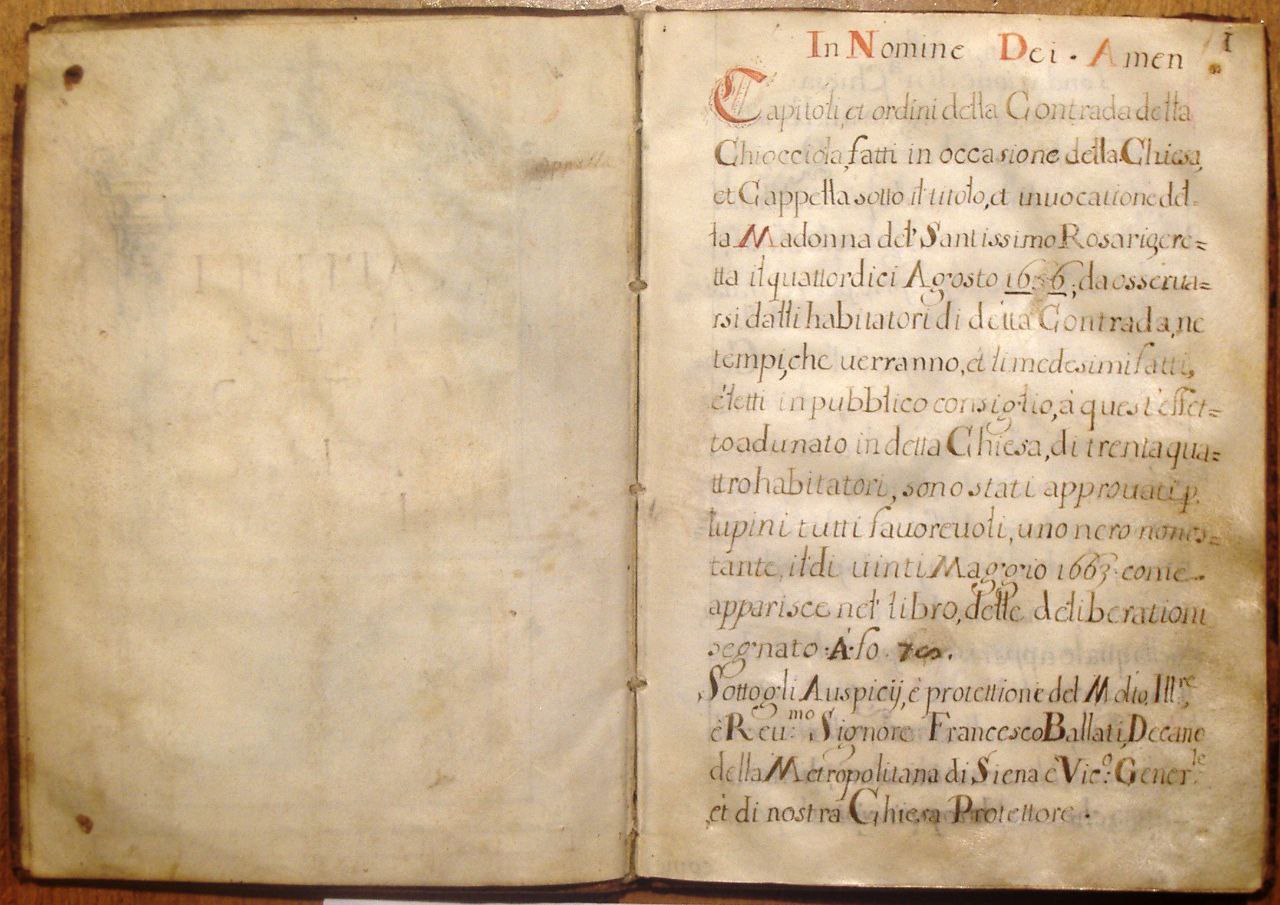 I
In Nomine Dei · Amen
Capitoli, et ordini della Contrada della
Chiocciola, fatti in occasione della Chiesa,
et Cappella sotto il titolo, et inuocatione del=
la Madonna del Santissimo Rosari gere=
tta il quattordici Agosto 1656, da osserua=
rsi dalli habitatori di detta Contrada, ne
tempi, che uerranno, et li medesimi fatti,
e letti in pubblico consiglio, à quest'effet=
to adunato in detta Chiesa, di trenta qua=
ttro habitatori, sono stati approuati p.
lupini tutti fauoreuoli, uno nero nones=
tante, il di uinti Maggio 1663 come
apparisce nel libro, delle deliberationi
segnato ·A· fo.
Sotto gli Auspicij, è protettione del Molto Ill.re,
è Reu:mo Signore Francesco Ballati, Decano
della Metropolitana di Siena è Vic:o Gener:le
et di nostra Chiesa Protettore ·